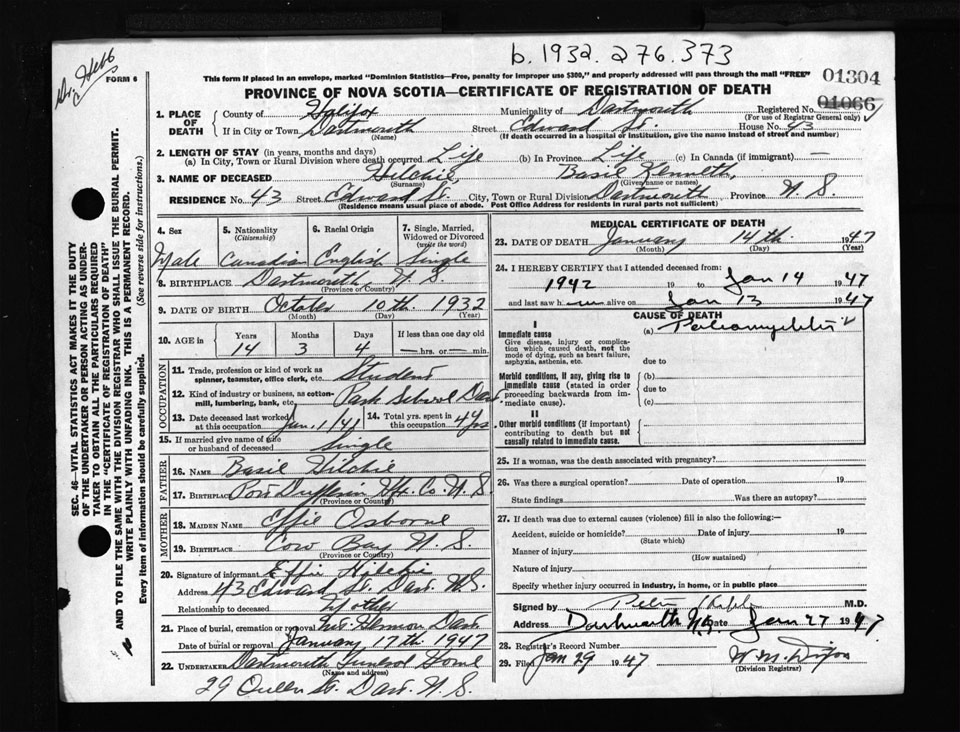 b. 1932. 276. 373
Dr. Hebb
FORM 6
This form if placed in an envelope, marked "Dominion Statistics—Free, penalty for improper use $300," and properly addressed will pass through the mail "FREE"
01304
PROVINCE OF NOVA SCOTIA—CERTIFICATE OF REGISTRATION OF DEATH
01066
1. PLACE OF DEATH
County of Halifax Municipality of Dartmouth Registered No.
(For use of Registrar General only)
If in City or Town Dartmouth Street Edward St. House No. 43
(Name) (If death occurred in a hospital or institution, give the name instead of street and number)
2. LENGTH OF STAY (in years, months and days)
(a) In City, Town or Rural Division where death occurred Life (b) In Province Life (c) In Canada (if immigrant) —
3. NAME OF DECEASED Hilchie Basil Kenneth,
(Surname) (Given name or names)
RESIDENCE No. 43 Street Edward St. City, Town or Rural Division Dartmouth Province N.S.
(Residence means usual place of abode. Post Office Address for residents in rural parts not sufficient)
4. Sex 5. Nationality (Citizenship) 6. Racial Origin 7. Single, Married, Widowed or Divorced (write the word)
Male Canadian English Single
8. BIRTHPLACE Dartmouth N.S.
(Province or Country)
9. DATE OF BIRTH October 10th 1932
(Month) (Day) (Year)
10. AGE in Years Months Days If less than one day old
14 3 4 —hrs. or—min.
OCCUPATION
11. Trade, profession or kind of work as spinner, teamster, office clerk, etc. Student
12. Kind of industry or business, as cotton-mill, lumbering, bank, etc. Park School Dart
13. Date deceased last worked at this occupation Jan. 1/41 14. Total yrs. spent in this occupation 4 yrs
15. If married give name of wife or husband of deceased Single
FATHER
16. NAME Basil Hilchie
17. BIRTHPLACE Port Dufferin Hfx. Co. N.S.
(Province or Country)
MOTHER
18. MAIDEN NAME Effie Osborne
19. BIRTHPLACE Cow Bay N.S.
(Province or Country)
20. Signature of informant Effie Hilchie
Address 43 Edward St. Dart. N.S.
Relationship to deceased Mother
21. Place of burial, cremation or removal Mt. Hermon Dart.
Date of burial or removal January 17th 1947
22. UNDERTAKER Dartmouth Funeral Home
(Name and address)
29 Queen St. Dart. N.S.
MEDICAL CERTIFICATE OF DEATH
23. DATE OF DEATH January 14th 1947
(Month) (Day) (Year)
24. I HEREBY CERTIFY that I attended deceased from:
1942 19 to Jan 14 1947
and last saw h im alive on Jan 13 1947
CAUSE OF DEATH
I
Immediate cause (a)
Give disease, injury or complication which caused death, not the mode of dying, such as heart failure, asphyxia, asthenia, etc.
due to
Morbid conditions, if any, giving rise to immediate cause (stated in order proceeding backwards from immediate cause).
(b)
due to
(c)
II
Other morbid conditions (if important) contributing to death but not causally related to immediate cause.
25. If a woman, was the death associated with pregnancy?
26. Was there a surgical operation? Date of operation 19
State findings Was there an autopsy?
27. If death was due to external causes (violence) fill in also the following:
Accident, suicide or homicide? Date of injury 19
(State which)
Manner of injury
(How sustained)
Nature of injury
Specify whether injury occurred in industry, in home, or in public place
Signed by M.D.
Address Dartmouth N.S. Date Jan 27 1947
28. Registrar's Record Number
29. Filed Jan 29 1947
(Division Registrar)
SEC. 46—VITAL STATISTICS ACT MAKES IT THE DUTY
OF THE UNDERTAKER OR PERSON ACTING AS UNDERTAKER TO OBTAIN ALL THE PARTICULARS REQUIRED
IN THE "CERTIFICATE OF REGISTRATION OF DEATH"
AND TO FILE THE SAME WITH THE DIVISION REGISTRAR WHO SHALL ISSUE THE BURIAL PERMIT.
WRITE PLAINLY WITH UNFADING INK. THIS IS A PERMANENT RECORD.
Every item of information should be carefully supplied. (See reverse side for instructions.)